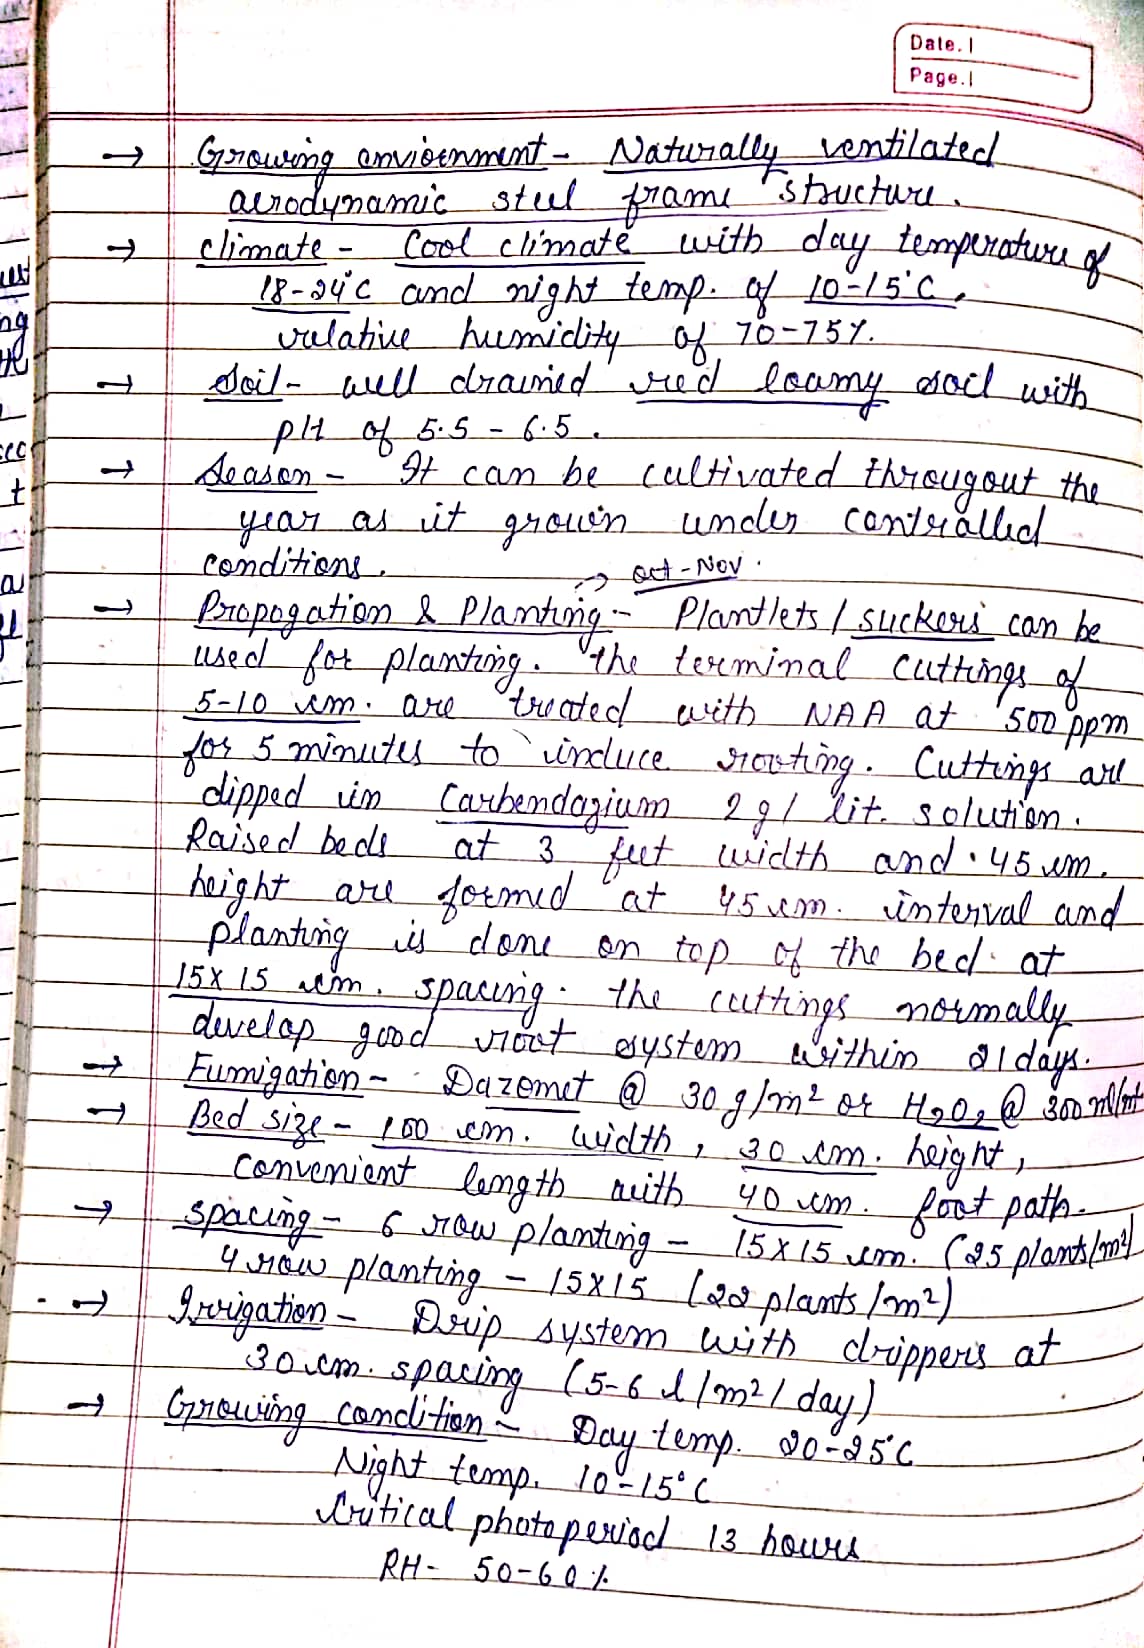 Date.
Page.
→ Growing enviornment - Naturally ventilated
aerodynamic steel frame structure.
→ climate - Cool climate with day temperature of
18-24°C and night temp. of 10-15°C,
relative humidity of 70-75%.
→ Soil - well drained red loamy soil with
pH of 5.5 - 6.5.
→ Season - It can be cultivated througout the
year as it grown under controlled
conditions.
→ Oct - Nov.
→ Propogation & Planting - Plantlets / suckers can be
used for planting. The terminal cuttings of
5-10 cm. are treated with NAA at 500 ppm
for 5 minutes to induce rooting. Cuttings are
dipped in Carbendazium 2 g / lit. solution.
Raised beds at 3 feet width and 45 cm.
height are formed at 45 cm. interval and
planting is done on top of the bed at
15x15 cm. spacing. The cuttings normally
develop good root system within 21 days.
→ Fumigation - Dazomet @ 30 g/m² or H₂O₂ @ 300 ml/mt
→ Bed size - 100 cm. width, 30 cm. height,
convenient length with 40 cm. foot path.
→ Spacing - 6 row planting - 15x15 cm. (25 plants/m²)
4 row planting - 15x15 (22 plants/m²)
→ Irrigation - Drip system with drippers at
30 cm. spacing (5-6 l/m²/day)
→ Growing condition - Day temp. 20-25°C
Night temp. 10-15°C
Critical photoperiod 13 hours
RH - 50-60%